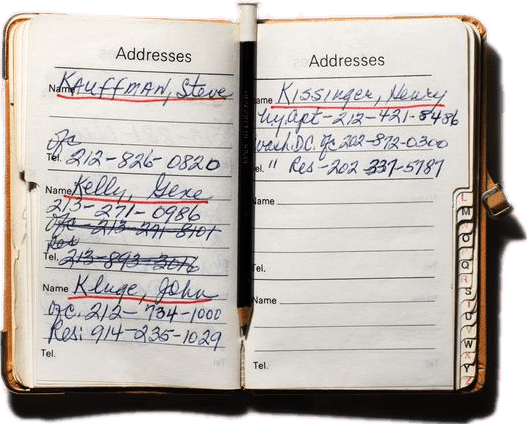 Addresses
Name KAUFFMAN, Steve
ofc
Tel. 212-826-0820
Name Kelly, Gene
213-271-0986
ofc 213-271-8101
Res
Tel.
Name Kluge, John
Ofc. 212-734-1000
Res: 914-235-1029
Tel.
Addresses
Name Kissinger, Henry
Ny. apt-212-421-8486
Wash. D.C. ofc 202-872-0300
Tel. " Res-202 337-5787
Name
Tel.
Name
Tel.
L
M
O
Q
S
U
W
Y